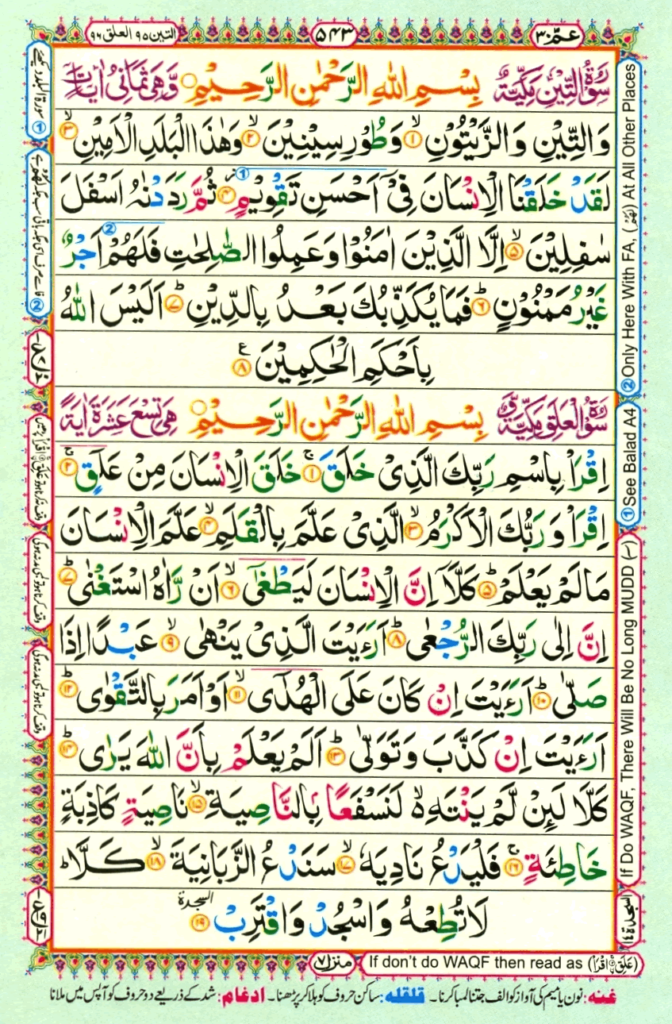 عمّ ٣٠
٥٤٣
التين ٩٥ العلق ٩٦
سُوْرَةُ التِّيْنِ مَكِّيَّةٌ بِسْمِ اللهِ الرَّحْمٰنِ الرَّحِيْمِ وَّهِيَ ثَمَانِيْ اٰيَاتٍ
وَالتِّيْنِ وَالزَّيْتُوْنِ ۙ﴿۱﴾ وَطُوْرِ سِيْنِيْنَ ۙ﴿۲﴾ وَهٰذَا الْبَلَدِ الْاَمِيْنِ ۙ﴿۳﴾
لَقَدْ خَلَقْنَا الْاِنْسَانَ فِيْۤ اَحْسَنِ تَقْوِيْمٍ ۫﴿۴﴾ ثُمَّ رَدَدْنٰهُ اَسْفَلَ
سٰفِلِيْنَ ۙ﴿۵﴾ اِلَّا الَّذِيْنَ اٰمَنُوْا وَعَمِلُوا الصّٰلِحٰتِ فَلَهُمْ اَجْرٌ
غَيْرُ مَمْنُوْنٍ ؕ﴿۶﴾ فَمَا يُكَذِّبُكَ بَعْدُ بِالدِّيْنِ ؕ﴿۷﴾ اَلَيْسَ اللهُ
بِاَحْكَمِ الْحٰكِمِيْنَ ﴿۸﴾
سُوْرَةُ الْعَلَقِ مَكِّيَّةٌ وَّ بِسْمِ اللهِ الرَّحْمٰنِ الرَّحِيْمِ هِيَ تِسْعَ عَشَرَةَ اٰيَةً
اِقْرَاْ بِاسْمِ رَبِّكَ الَّذِيْ خَلَقَ ۚ﴿۱﴾ خَلَقَ الْاِنْسَانَ مِنْ عَلَقٍ ۚ﴿۲﴾
اِقْرَاْ وَرَبُّكَ الْاَكْرَمُ ۙ﴿۳﴾ الَّذِيْ عَلَّمَ بِالْقَلَمِ ۙ﴿۴﴾ عَلَّمَ الْاِنْسَانَ
مَا لَمْ يَعْلَمْ ؕ﴿۵﴾ كَلَّاۤ اِنَّ الْاِنْسَانَ لَيَطْغٰۤى ۙ﴿۶﴾ اَنْ رَّاٰهُ اسْتَغْنٰى ؕ﴿۷﴾
اِنَّ اِلٰى رَبِّكَ الرُّجْعٰى ؕ﴿۸﴾ اَرَءَيْتَ الَّذِيْ يَنْهٰى ۙ﴿۹﴾ عَبْدًا اِذَا
صَلّٰى ؕ﴿۱۰﴾ اَرَءَيْتَ اِنْ كَانَ عَلَى الْهُدٰۤى ۙ﴿۱۱﴾ اَوْ اَمَرَ بِالتَّقْوٰى ؕ﴿۱۲﴾
اَرَءَيْتَ اِنْ كَذَّبَ وَتَوَلّٰى ؕ﴿۱۳﴾ اَلَمْ يَعْلَمْ بِاَنَّ اللهَ يَرٰى ؕ﴿۱۴﴾
كَلَّا لَئِنْ لَّمْ يَنْتَهِ ۙ لَنَسْفَعًا بِالنَّاصِيَةِ ۙ﴿۱۵﴾ نَاصِيَةٍ كَاذِبَةٍ
خَاطِئَةٍ ۚ﴿۱۶﴾ فَلْيَدْعُ نَادِيَهٗ ۙ﴿۱۷﴾ سَنَدْعُ الزَّبَانِيَةَ ۙ﴿۱۸﴾ كَلَّا ؕ
لَا تُطِعْهُ وَاسْجُدْ وَاقْتَرِبْ ﴿۱۹﴾ السجدة
② Only Here With FA, (لَهُمْ) At All Other Places
① See Balad A4
If Do WAQF, There Will Be No Long MUDD (~)
السجدة ١٤
منزل ٧
If don't do WAQF then read as (عَلَقٍ اِقْرَاْ)
غنه: نون یا میم کی آواز کو الف جتنا لمبا کرنا۔ قلقله: ساکن حروف کو ہلا کر پڑھنا۔ ادغام: شد کے ذریعے دو حروف کو آپس میں ملانا